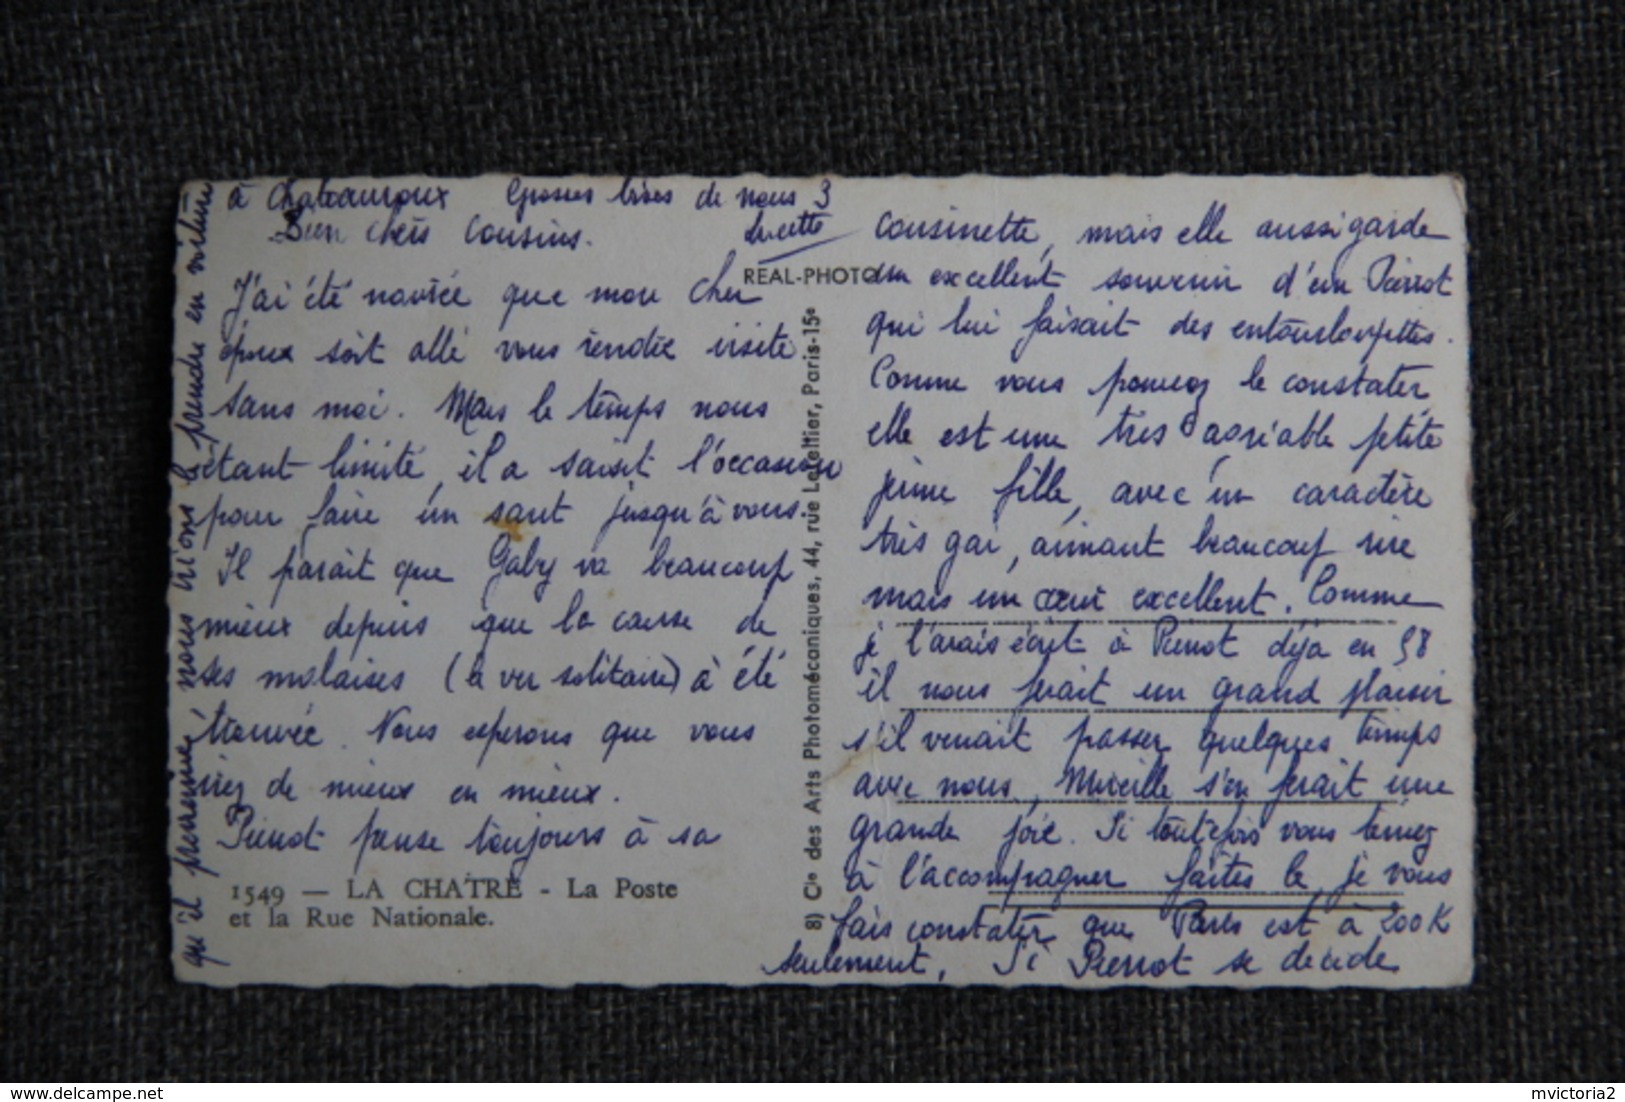 Bien chers Cousins.
J'ai été navrée que mon cher
époux soit allé vous rendre visite
sans moi. Mais le temps nous
étant limité, il a saisit l'occasion
pour faire un saut jusqu'à vous.
Il parait que Gaby va beaucoup
mieux depuis que la cause de
ses malaises (le ver solitaire) à été
trouvée. Nous esperons que vous
irez de mieux en mieux.
Pierrot pense toujours à sa
cousinette, mais elle aussi garde
un excellent souvenir d'un Pierrot
qui lui faisait des entourloupettes.
Comme vous pouvez le constater
elle est une très agréable petite
jeune fille, avec un caractère
très gai, aimant beaucoup rire
mais un cœur excellent. Comme
je l'avais écrit à Pierrot déjà en 58
il nous ferait un grand plaisir
s'il venait passer quelques temps
avec nous, Mireille s'en ferait une
grande joie. Si toutefois vous teniez
à l'accompagner faites le, je vous
fais constater que Paris est à 200 K
seulement. Si Pierrot se décide
qu'il prévienne, nous irions le prendre en voiture
à Chateauroux Grosses bises de nous 3
Lucette
REAL-PHOTO
8) Cie des Arts Photomécaniques, 44, rue Letellier, Paris-15e
1549 — LA CHATRE - La Poste
et la Rue Nationale.
mvictoria2